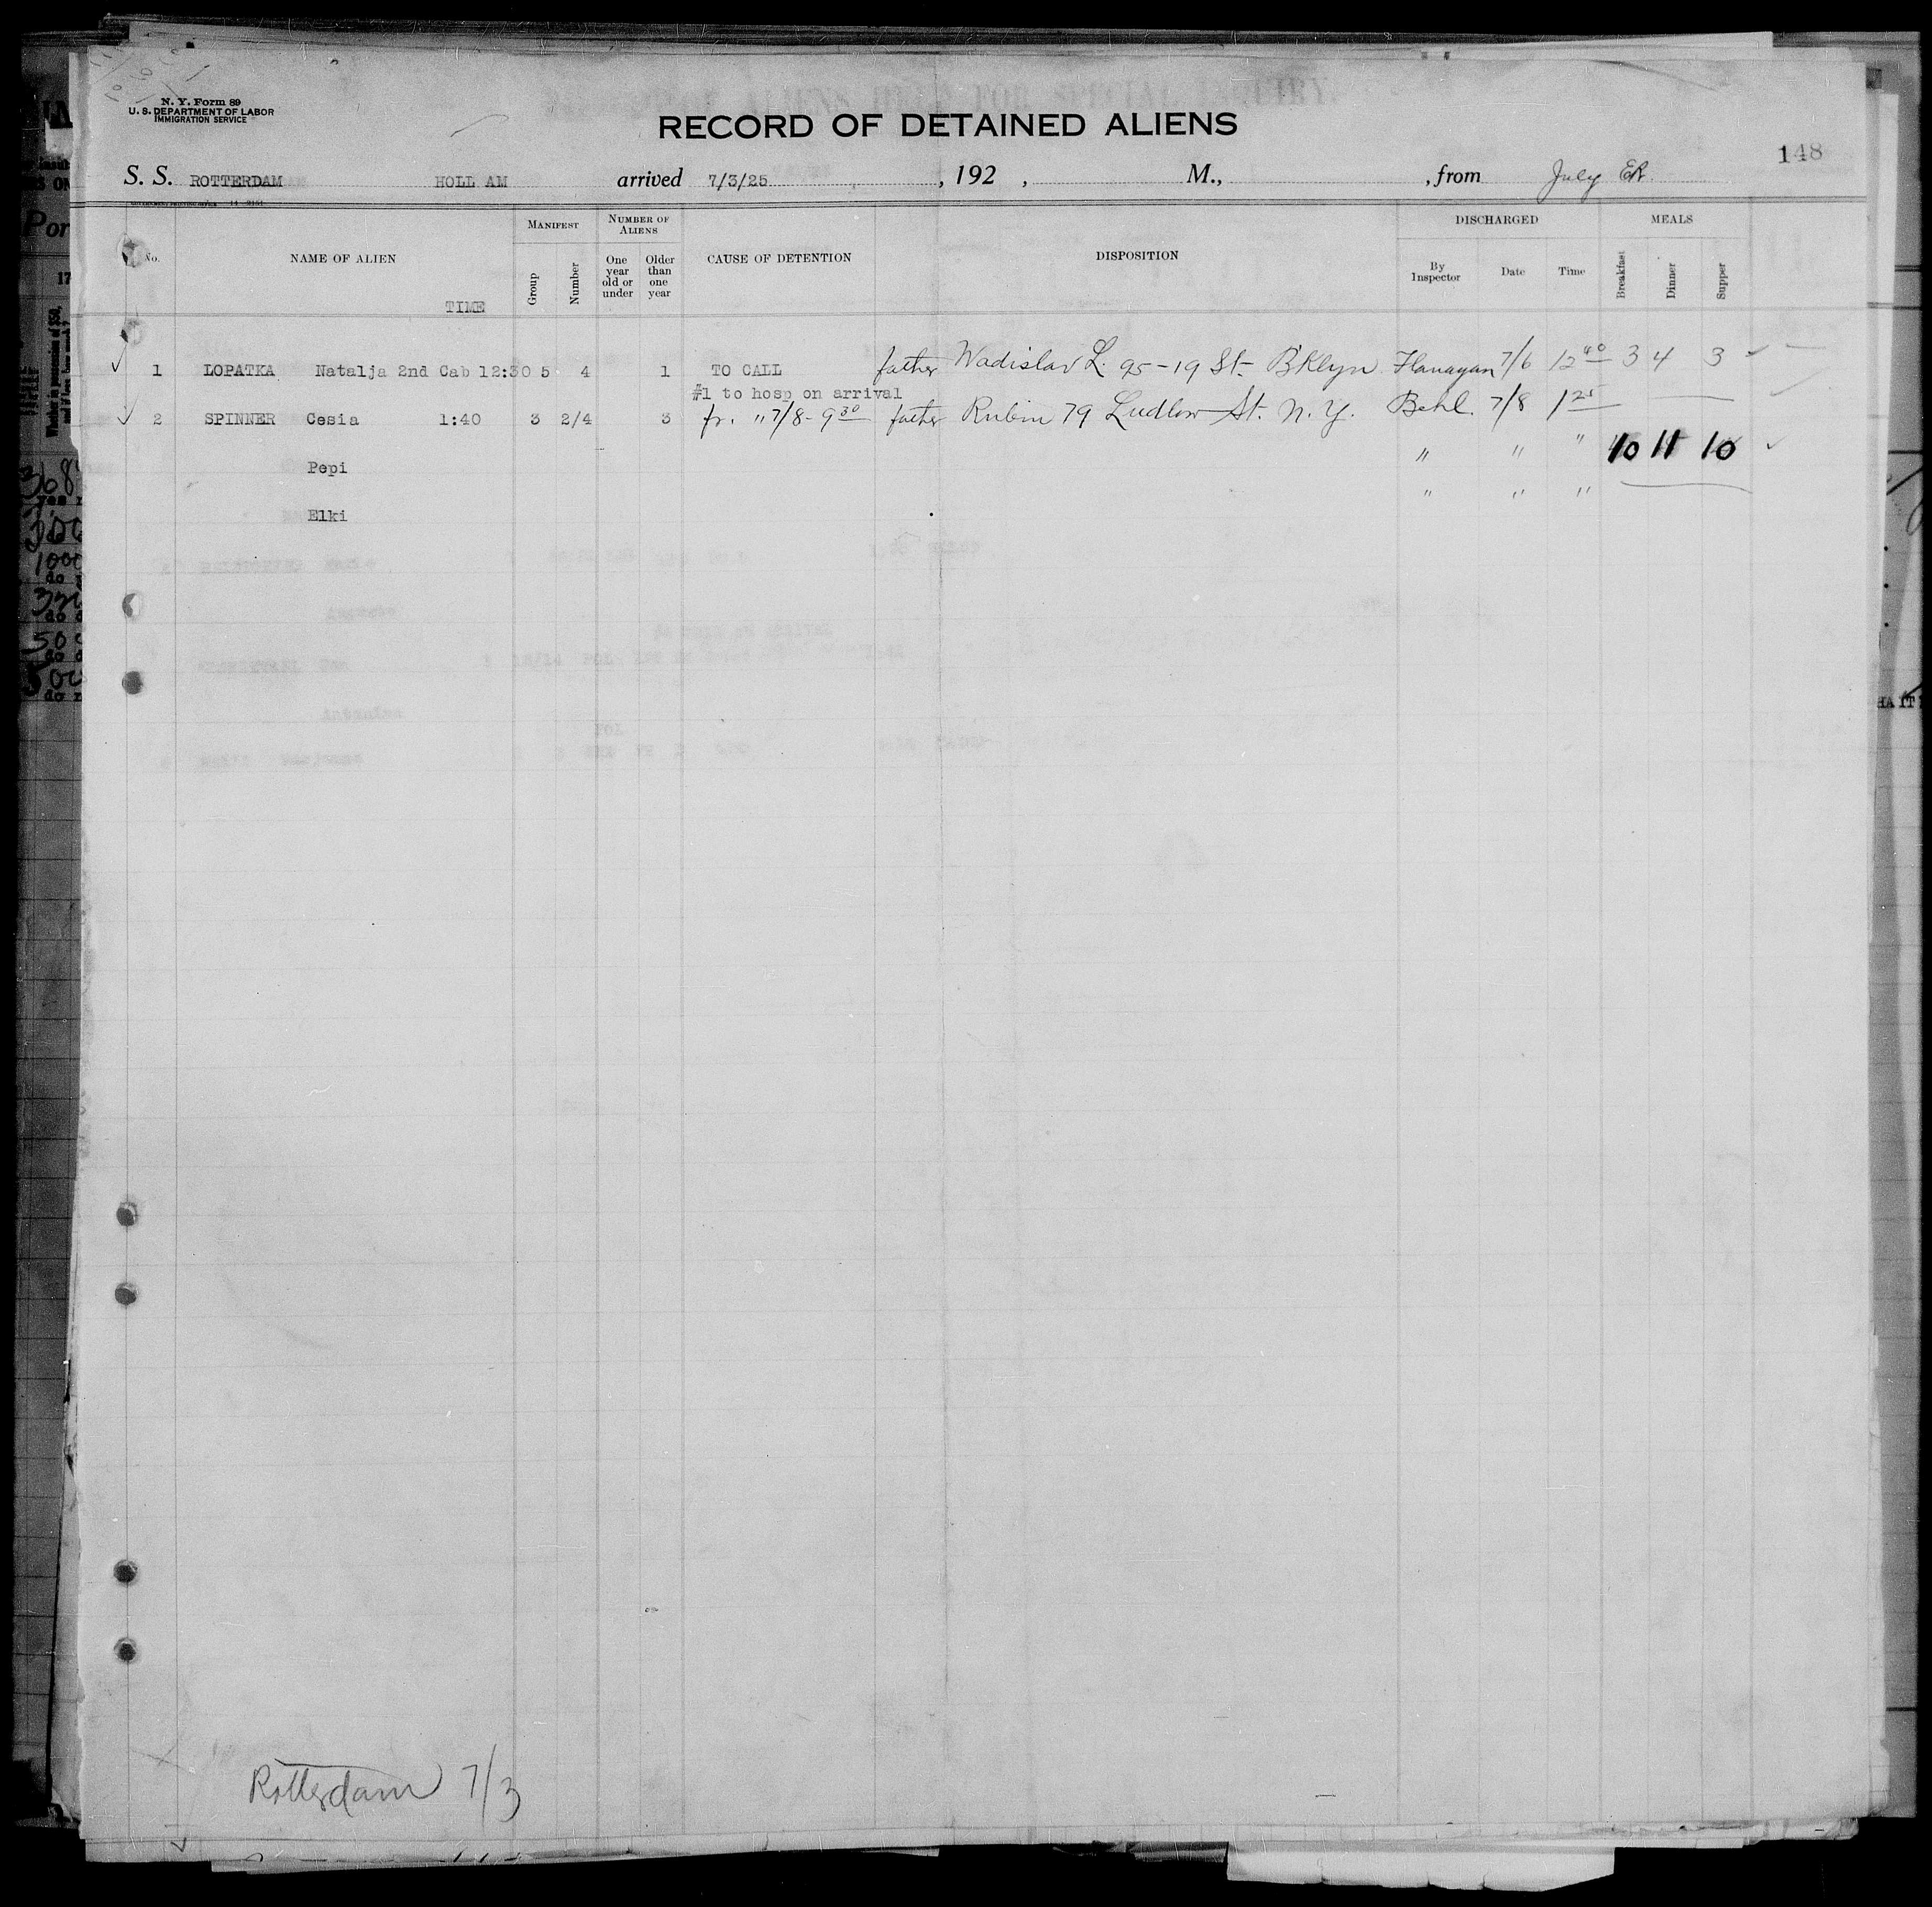 N. Y. Form 89
U. S. DEPARTMENT OF LABOR
IMMIGRATION SERVICE
RECORD OF DETAINED ALIENS
148
S. S. ROTTERDAM HOLL AM arrived 7/3/25 , 192 , M., , from July ER
GOVERNMENT PRINTING OFFICE
No. NAME OF ALIEN TIME MANIFEST Group Number NUMBER OF ALIENS One year old or under Older than one year CAUSE OF DETENTION DISPOSITION DISCHARGED By Inspector Date Time MEALS Breakfast Dinner Supper
1 LOPATKA Natalja 2nd Cab 12:30 5 4 1 TO CALL father Wadislav L. 95-19 St. B'Klyn Flanagan 7/6 12 40 3 4 3
#1 to hosp on arrival
2 SPINNER Cesia 1:40 3 2/4 3 fr. " 7/8 - 9 30 father Rubin 79 Ludlow St. N. Y. Behl. 7/8 1 25
Pepi " " " 10 11 10
Elki " " "
Rotterdam 7/3